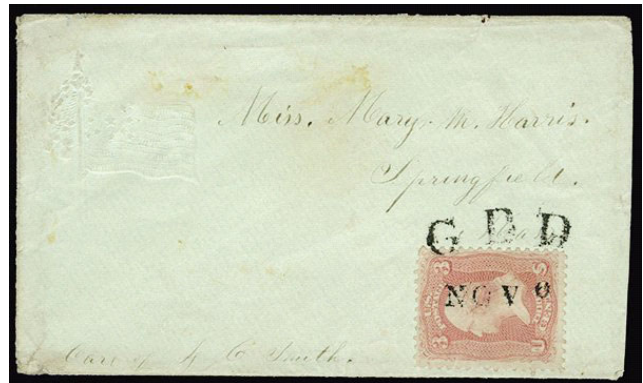 Miss. Mary. M. Harris.
Springfield.
G B D
NOV 6
3 3
U S
Care of H C Smith.